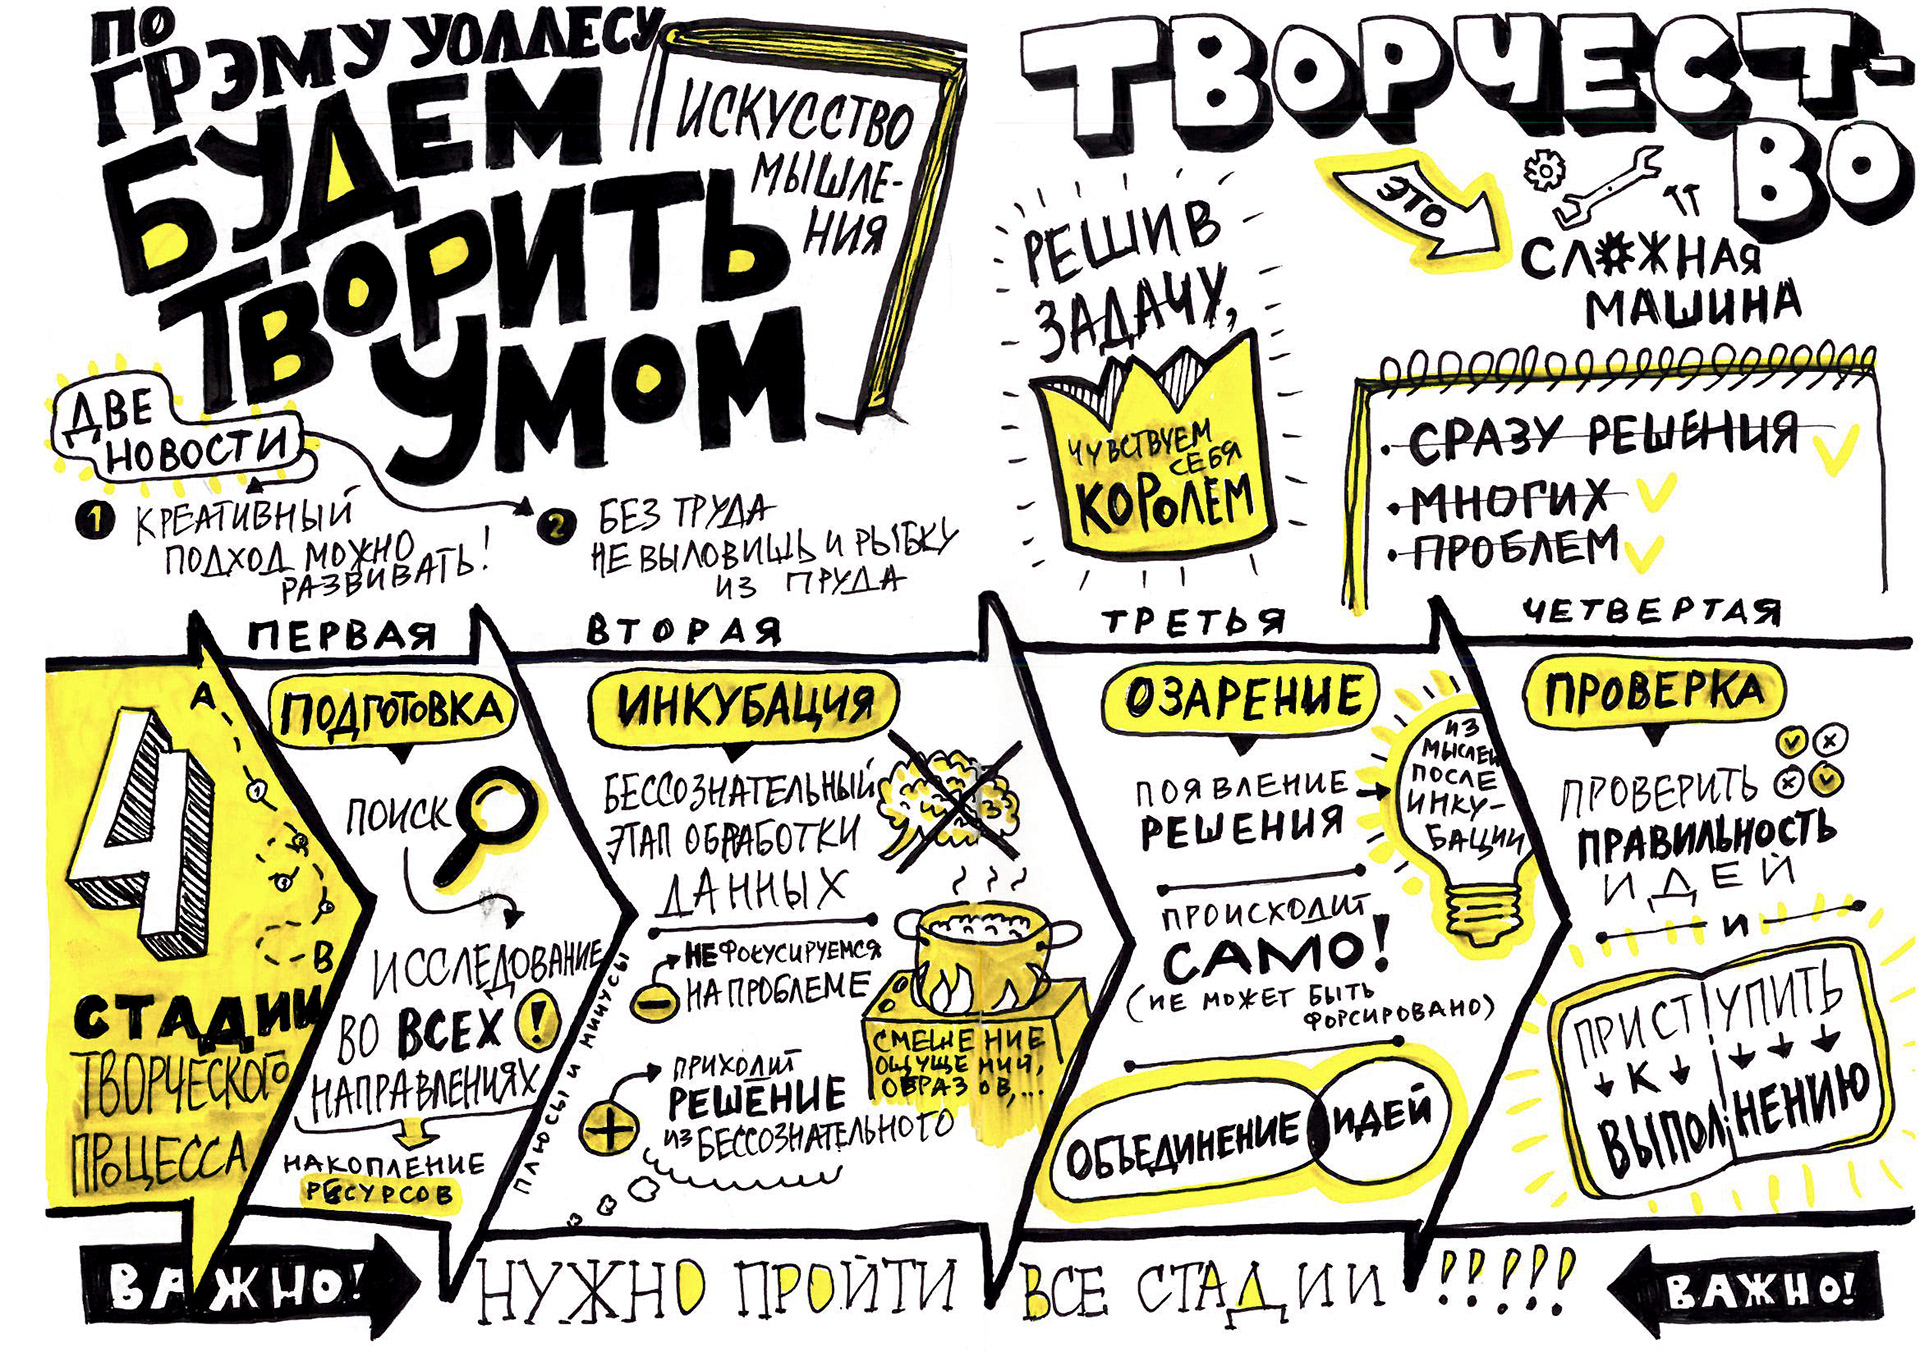 ПО
ГРЭМУ УОЛЛЕСУ
БУДЕМ
ТВОРИТЬ
УМОМ
ИСКУССТВО
МЫШЛЕ-
НИЯ
ДВЕ
НОВОСТИ
1 КРЕАТИВНЫЙ
ПОДХОД МОЖНО
РАЗВИВАТЬ!
2 БЕЗ ТРУДА
НЕ ВЫЛОВИШЬ И РЫБКУ
ИЗ ПРУДА
ТВОРЧЕСТ-
ВО
ЭТО
СЛОЖНАЯ
МАШИНА
РЕШИВ
ЗАДАЧУ,
ЧУВСТВУЕМ
СЕБЯ
КОРОЛЕМ
• СРАЗУ РЕШЕНИЯ
• МНОГИХ
• ПРОБЛЕМ
4
СТАДИИ
ТВОРЧЕСКОГО
ПРОЦЕССА
А
1
В
ПЕРВАЯ
ПОДГОТОВКА
ПОИСК
ИССЛЕДОВАНИЕ
ВО ВСЕХ !
НАПРАВЛЕНИЯХ
НАКОПЛЕНИЕ
РЕСУРСОВ
ВТОРАЯ
ИНКУБАЦИЯ
БЕССОЗНАТЕЛЬНЫЙ
ЭТАП ОБРАБОТКИ
ДАННЫХ
ПЛЮСЫ И МИНУСЫ
− НЕ ФОКУСИРУЕМСЯ
НА ПРОБЛЕМЕ
+ ПРИХОДИТ
РЕШЕНИЕ
ИЗ БЕССОЗНАТЕЛЬНОГО
СМЕШЕНИЕ
ОЩУЩЕНИЙ,
ОБРАЗОВ,...
ТРЕТЬЯ
ОЗАРЕНИЕ
ПОЯВЛЕНИЕ
РЕШЕНИЯ
ИЗ
МЫСЛЕЙ
ПОСЛЕ
ИНКУ-
БАЦИИ
ПРОИСХОДИТ
САМО!
(НЕ МОЖЕТ БЫТЬ
ФОРСИРОВАНО)
ОБЪЕДИНЕНИЕ ИДЕЙ
ЧЕТВЕРТАЯ
ПРОВЕРКА
ПРОВЕРИТЬ
ПРАВИЛЬНОСТЬ
ИДЕЙ
И
ПРИСТУПИТЬ
К
ВЫПОЛНЕНИЮ
ВАЖНО!
НУЖНО ПРОЙТИ ВСЕ СТАДИИ !!!!!
ВАЖНО!